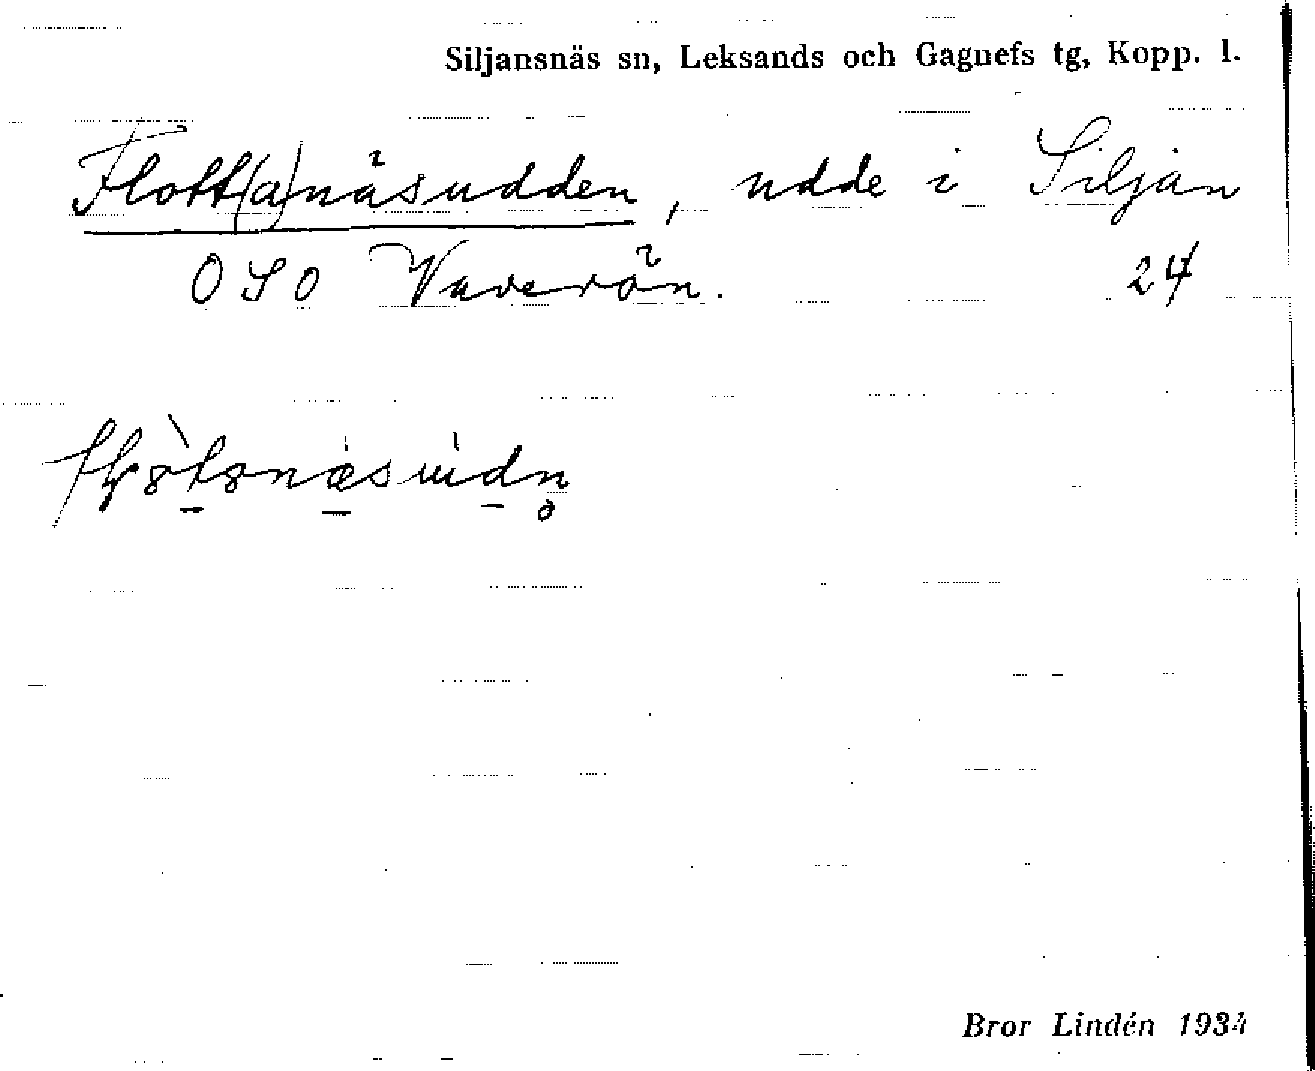 Siljansnäs sn, Leksands och Gagnefs tg, Kopp. l.
Flott(a)näsudden, udde i Siljan
OSO Vaverön. 24
Bror Lindén 1934